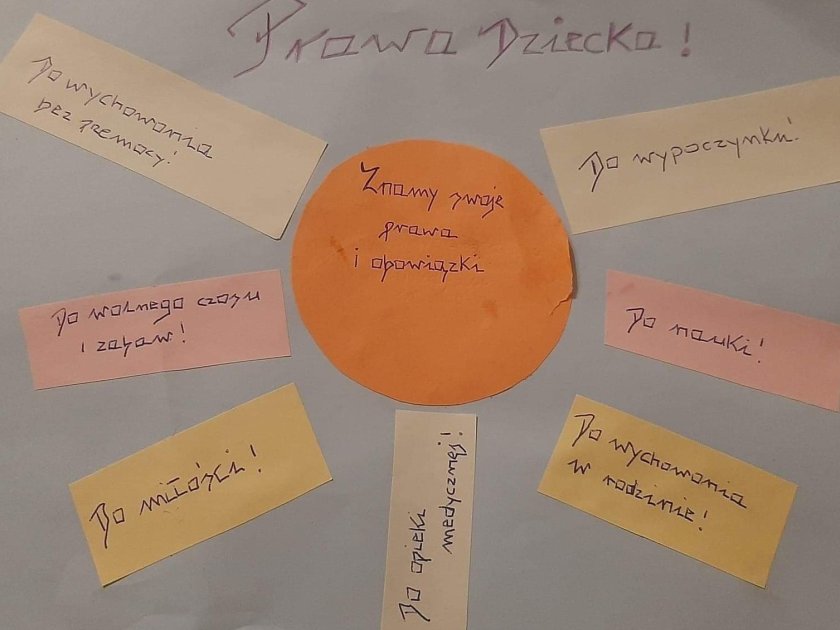 Prawa Dziecka!
Do wychowania
bez przemocy!
Do wypoczynku!
Znamy swoje
prawa
i obowiązki
Do wolnego czasu
i zabaw!
Do nauki!
Do miłości!
Do opieki
medycznej!
Do wychowania
w rodzinie!